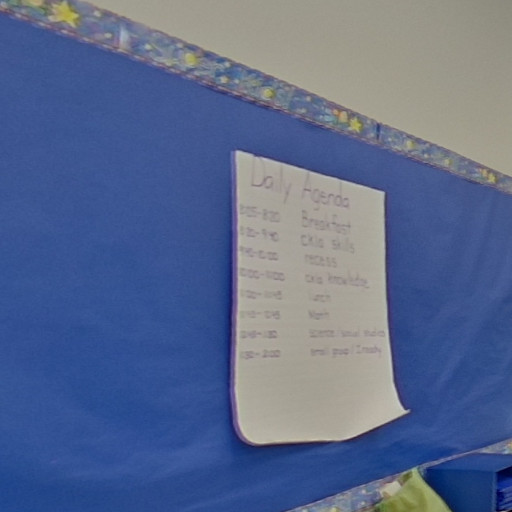 Daily Agenda
8:05-8:20 Breakfast
8:20-9:40 ckla skills
9:40-10:00 recess
10:00-11:00 ckla knowledge
11:00-11:45 lunch
Math
science/social studies
small group/Iready